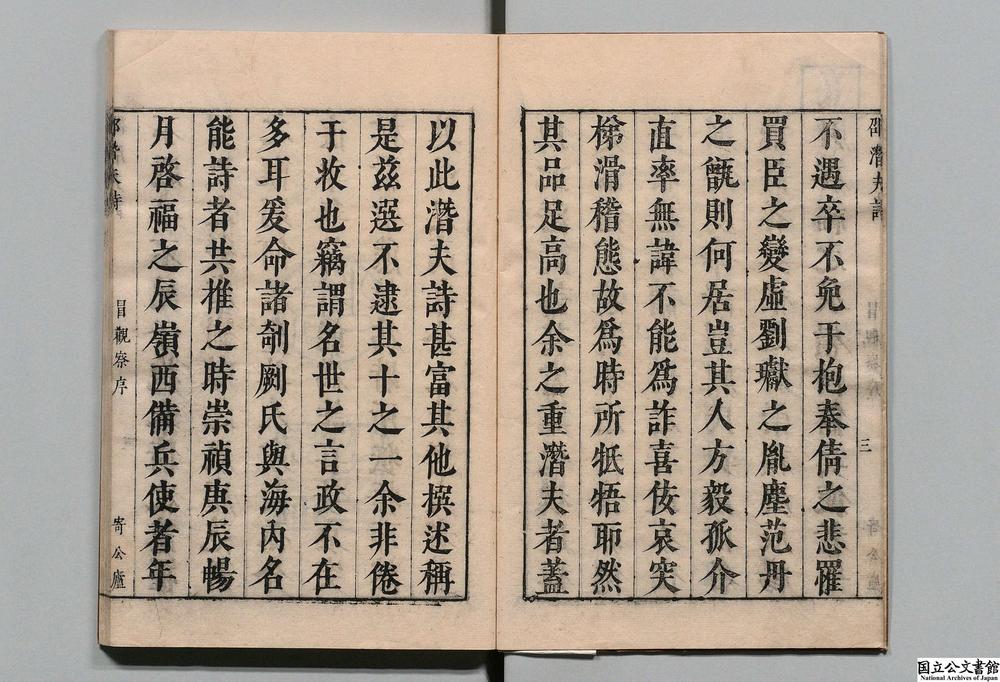 邵潛夫詩
冒觀察序
三
寄公廬
不遇卒不免于抱奉倩之悲罹
買臣之變虛劉瓛之胤塵范丹
之甑則何居豈其人方毅孤介
直率無諱不能爲詐喜佞哀突
梯滑稽態故爲時所牴牾耶然
其品足高也余之重潛夫者蓋
以此潛夫詩甚富其他撰述稱
是茲選不逮其十之一余非倦
于牧也竊謂名世之言政不在
多耳爰命諸剞劂氏與海內名
能詩者共推之時崇禎庚辰暢
月啓福之辰嶺西備兵使者年
邵潛夫詩
冒觀察序
寄公廬
国立公文書館
National Archives of Japan